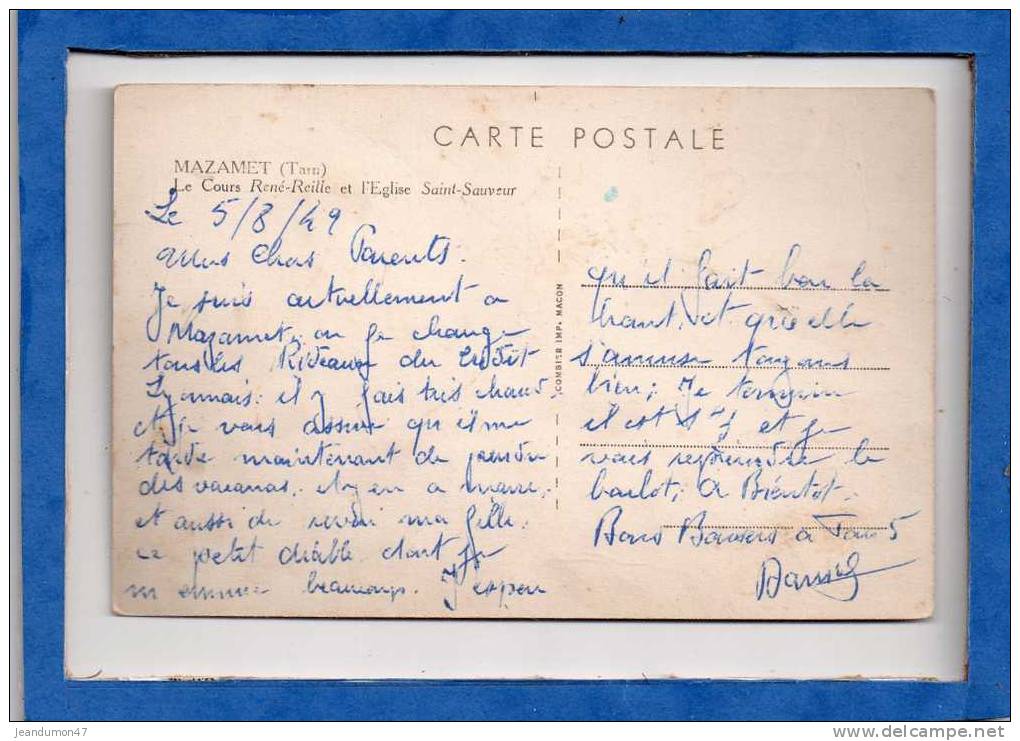 CARTE POSTALE
MAZAMET (Tarn)
Le Cours René-Reille et l'Eglise Saint-Sauveur
Le 5/8/49
Mes Chers Parents.
Je suis actuellement a
Mazamet, on je change
tous les Rideaux du Crédit
Lyonnais: il y fais très chaud
et je vous assure qu'il me
tarde maintenant de prendre
des vacances, il y en a marre,
et aussi de revoir ma fille,
ce petit diable dont je
m'ennuie beaucoup. J'espere
COMBIER IMP. MACON
qu'il fait bon la
haut, et qu'elle
s'amuse toujours
bien; Je termine
il est et je
vais reprendre le
boulot; A Bientot.
Bons Baisers a Tous
jeandumon47
www.delcampe.net